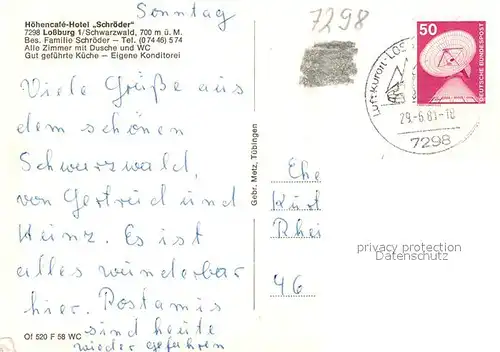 Sonntag
Höhencafé-Hotel „Schröder"
7298 Loßburg 1/Schwarzwald, 700 m ü. M.
Bes. Familie Schröder — Tel. (0 74 46) 5 74
Alle Zimmer mit Dusche und WC
Gut geführte Küche — Eigene Konditorei
Viele Grüße aus
dem schönen
Schwarzwald,
von Gertreid und
Heinz. Es ist
alles wunderbar
hier. Postamis
sind heute
wieder gefahren
Of 520 F 58 WC
Gebr. Metz, Tübingen
7298
50
DEUTSCHE BUNDESPOST
Luftkurort · LOS
29.-6.81-18
7298
Ehe
Kurt
Rhei
46
privacy protection
Datenschutz